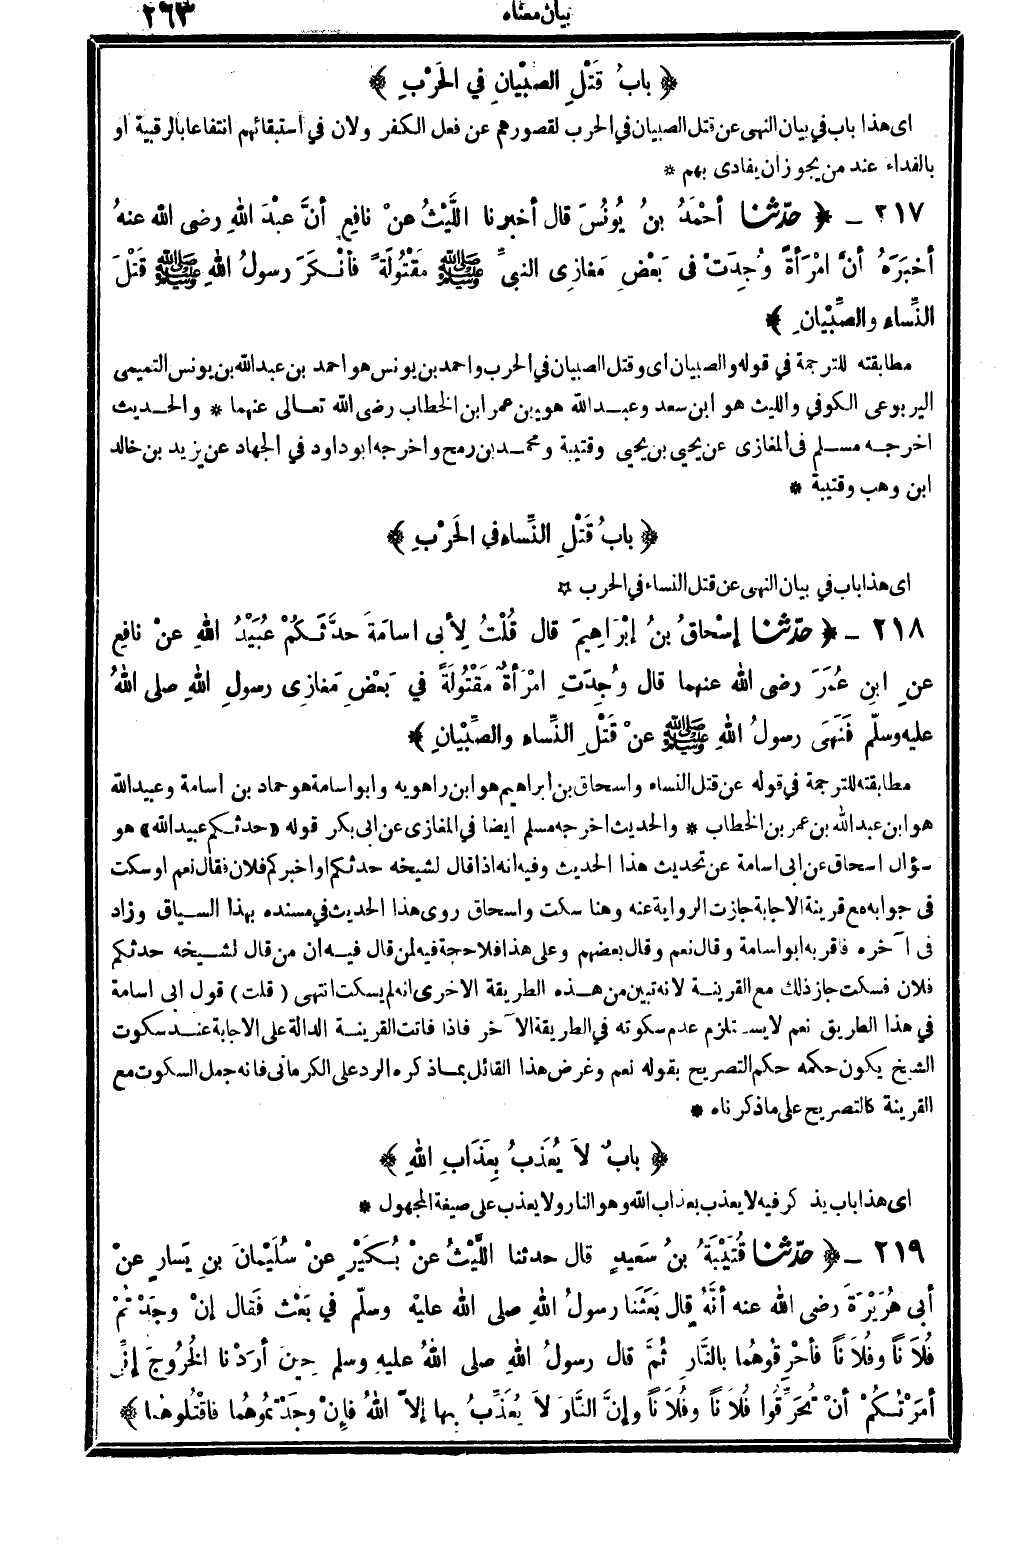 بيان معناه ٢٦٣
﴿ بابُ قَتْلِ الصبْيانِ في الحَرْبِ ﴾
اى هذا باب في بيان النهى عن قتل الصبيان في الحرب لقصورهم عن فعل الكفر ولان في استبقائهم انتفاعا بالرقبة او
بالفداء عند من يجوز ان يفادى بهم *
٢١٧ ـ ﴿ حدّثنا أحْمَدُ بنُ يُونُسَ قال أخبرنا اللَّيْثُ عنْ نافِعٍ أنَّ عبْدَ اللهِ رضى الله عنهُ
أخبَرَهُ أنَّ امْرَأةً وُجِدَتْ في بَعْضِ مَغازِى النبيِّ ﷺ مَقْتُولَةً فأنْكَرَ رسولُ اللهِ ﷺ قَتْلَ
النِّساءِ والصِّبْيانِ ﴾
مطابقته للترجمة في قوله والصبيان اى وقتل الصبيان في الحرب واحمد بن يونس هو احمد بن عبدالله بن يونس التميمى
اليربوعى الكوفي والليث هو ابن سعد وعبدالله هو بن عمر ابن الخطاب رضى الله تعالى عنهما * والحديث
اخرجه مسلم فى المغازى عن يحيى بن يحيى وقتيبة ومحمد بن رمح واخرجه ابو داود في الجهاد عن يزيد بن خالد
ابن وهب وقتيبة *
﴿ بابُ قَتْلِ النِّساءِ في الحَرْبِ ﴾
اى هذا باب في بيان النهى عن قتل النساء في الحرب ☆
٢١٨ ـ ﴿ حدّثنا إسْحاقُ بنُ إبْرَاهِيمَ قال قُلْتُ لِأبى اسامَةَ حدَّثَكُمْ عُبَيْدُ اللهِ عنْ نافِعٍ
عنِ ابنِ عُمَرَ رضى الله عنهما قال وُجِدَتِ امْرَأةٌ مَقْتُولَةً في بَعْضِ مَغازِى رسولِ اللهِ صلى اللهُ
عليه وسلّم فَنَهَى رسولُ اللهِ ﷺ عنْ قَتْلِ النِّساءِ والصِّبْيانِ ﴾
مطابقته للترجمة في قوله عن قتل النساء واسحاق بن ابراهيم هو ابن راهويه وابو اسامة هو حماد بن اسامة وعبيد الله
هو ابن عبدالله بن عمر بن الخطاب * والحديث اخرجه مسلم ايضا في المغازى عن ابى بكر قوله «حدثكم عبيدالله» هو
سؤال اسحاق عن ابى اسامة عن تحديث هذا الحديث وفيه انه اذا قال لشيخه حدثكم او اخبركم فلان فقال نعم او سكت
فى جوابه مع قرينة الاجابة جازت الرواية عنه وهنا سكت واسحاق روى هذا الحديث في مسنده بهذا السياق وزاد
فى آخره فاقر به ابو اسامة وقال نعم وقال بعضهم وعلى هذا فلا حجة فيه لمن قال فيه ان من قال لشيخه حدثكم
فلان فسكت جاز ذلك مع القرينة لانه تبين من هذه الطريقة الاخرى انه لم يسكت انتهى (قلت) قول ابى اسامة
في هذا الطريق نعم لا يستلزم عدم سكوته في الطريقة الآخر فاذا فاتت القرينة الدالة على الاجابة عند سكوت
الشيخ يكون حكمه حكم التصريح بقوله نعم وغرض هذا القائل بما ذكره الرد على الكرمانى فانه جمل السكوت مع
القرينة كالتصريح على ما ذكرناه *
﴿ بابٌ لاَ يُعَذبُ بِعَذَابِ اللهِ ﴾
اى هذا باب يذكر فيه لا يعذب بعذاب الله وهو النار ولا يعذب على صيغة المجهول *
٢١٩ ـ ﴿ حدّثنا قُتَيْبَةُ بنُ سَعيدٍ قال حدثنا اللَّيْثُ عنْ بُكَيْرٍ عنْ سُلَيْمَانَ بنِ يَسارٍ عنْ
أبى هُرَيْرَةَ رضى الله عنه أنَّهُ قال بَعَثَنا رسولُ اللهِ صلى الله عليْه وسلّم في بَعْثٍ فَقال إنْ وجَدْتُمْ
فُلاَناً وفُلاَناً فأحْرِقُوهُما بالنَّارِ ثُمَّ قال رسولُ اللهِ صلى اللهُ عليهِ وسلم حِينَ أرَدْنا الخُروجَ إنِّى
أمَرْتُكُمْ أنْ تُحَرِّقُوا فُلاَناً وفُلاَناً وإنَّ النَّارَ لاَ يُعَذِّبُ بِها إلاَّ اللهُ فإنْ وجَدْتمُوهُما فاقْتُلوهُما ﴾